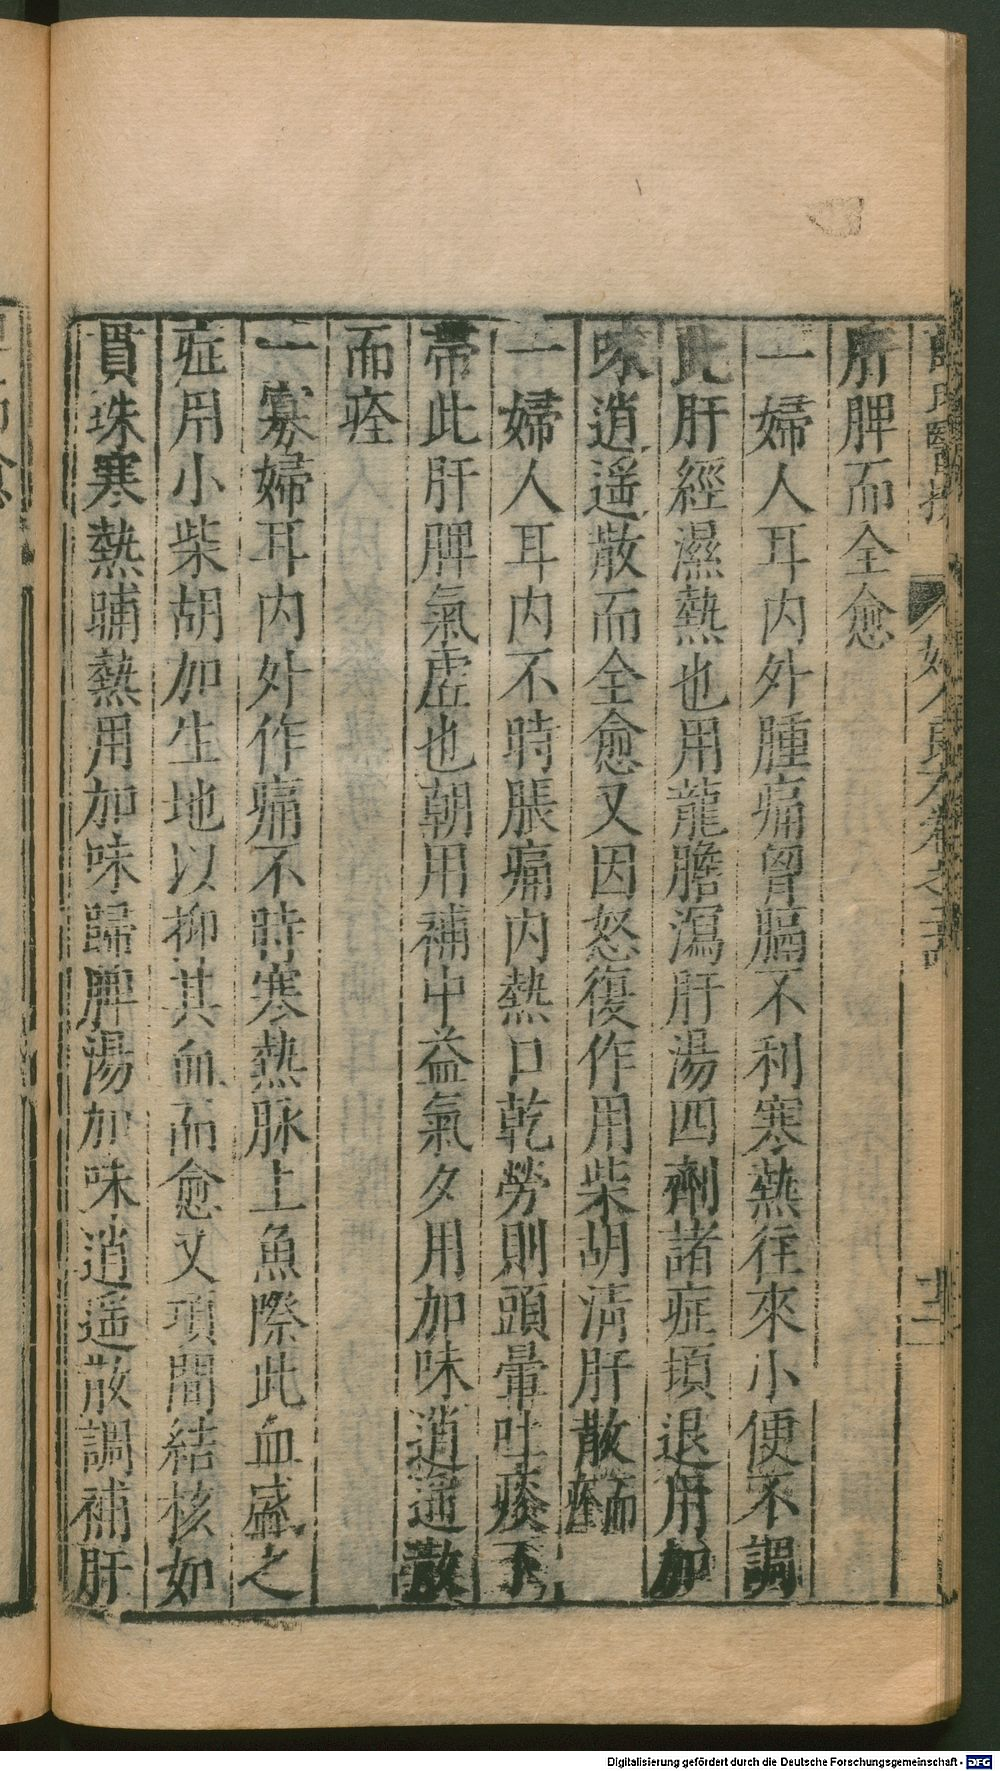 薛氏醫按 婦人良方卷之二十四
肝脾而全愈
一婦人耳内外腫痛胷膈不利寒熱往來小便不調
此肝經濕熱也用龍膽瀉肝湯四劑諸症頓退用加
味逍遥散而全愈又因怒復作用柴胡淸肝散而痊
一婦人耳内不時脹痛内熱口乾勞則頭暈吐痰下
帶此肝脾氣虛也朝用補中益氣夕用加味逍遥散
而痊
一寡婦耳内外作痛不時寒熱脉上魚際此血盛之
症用小柴胡加生地以抑其血而愈又項間結核如
貫珠寒熱晡熱用加味歸脾湯加味逍遥散調補肝
Digitalisierung gefördert durch die Deutsche Forschungsgemeinschaft - DFG